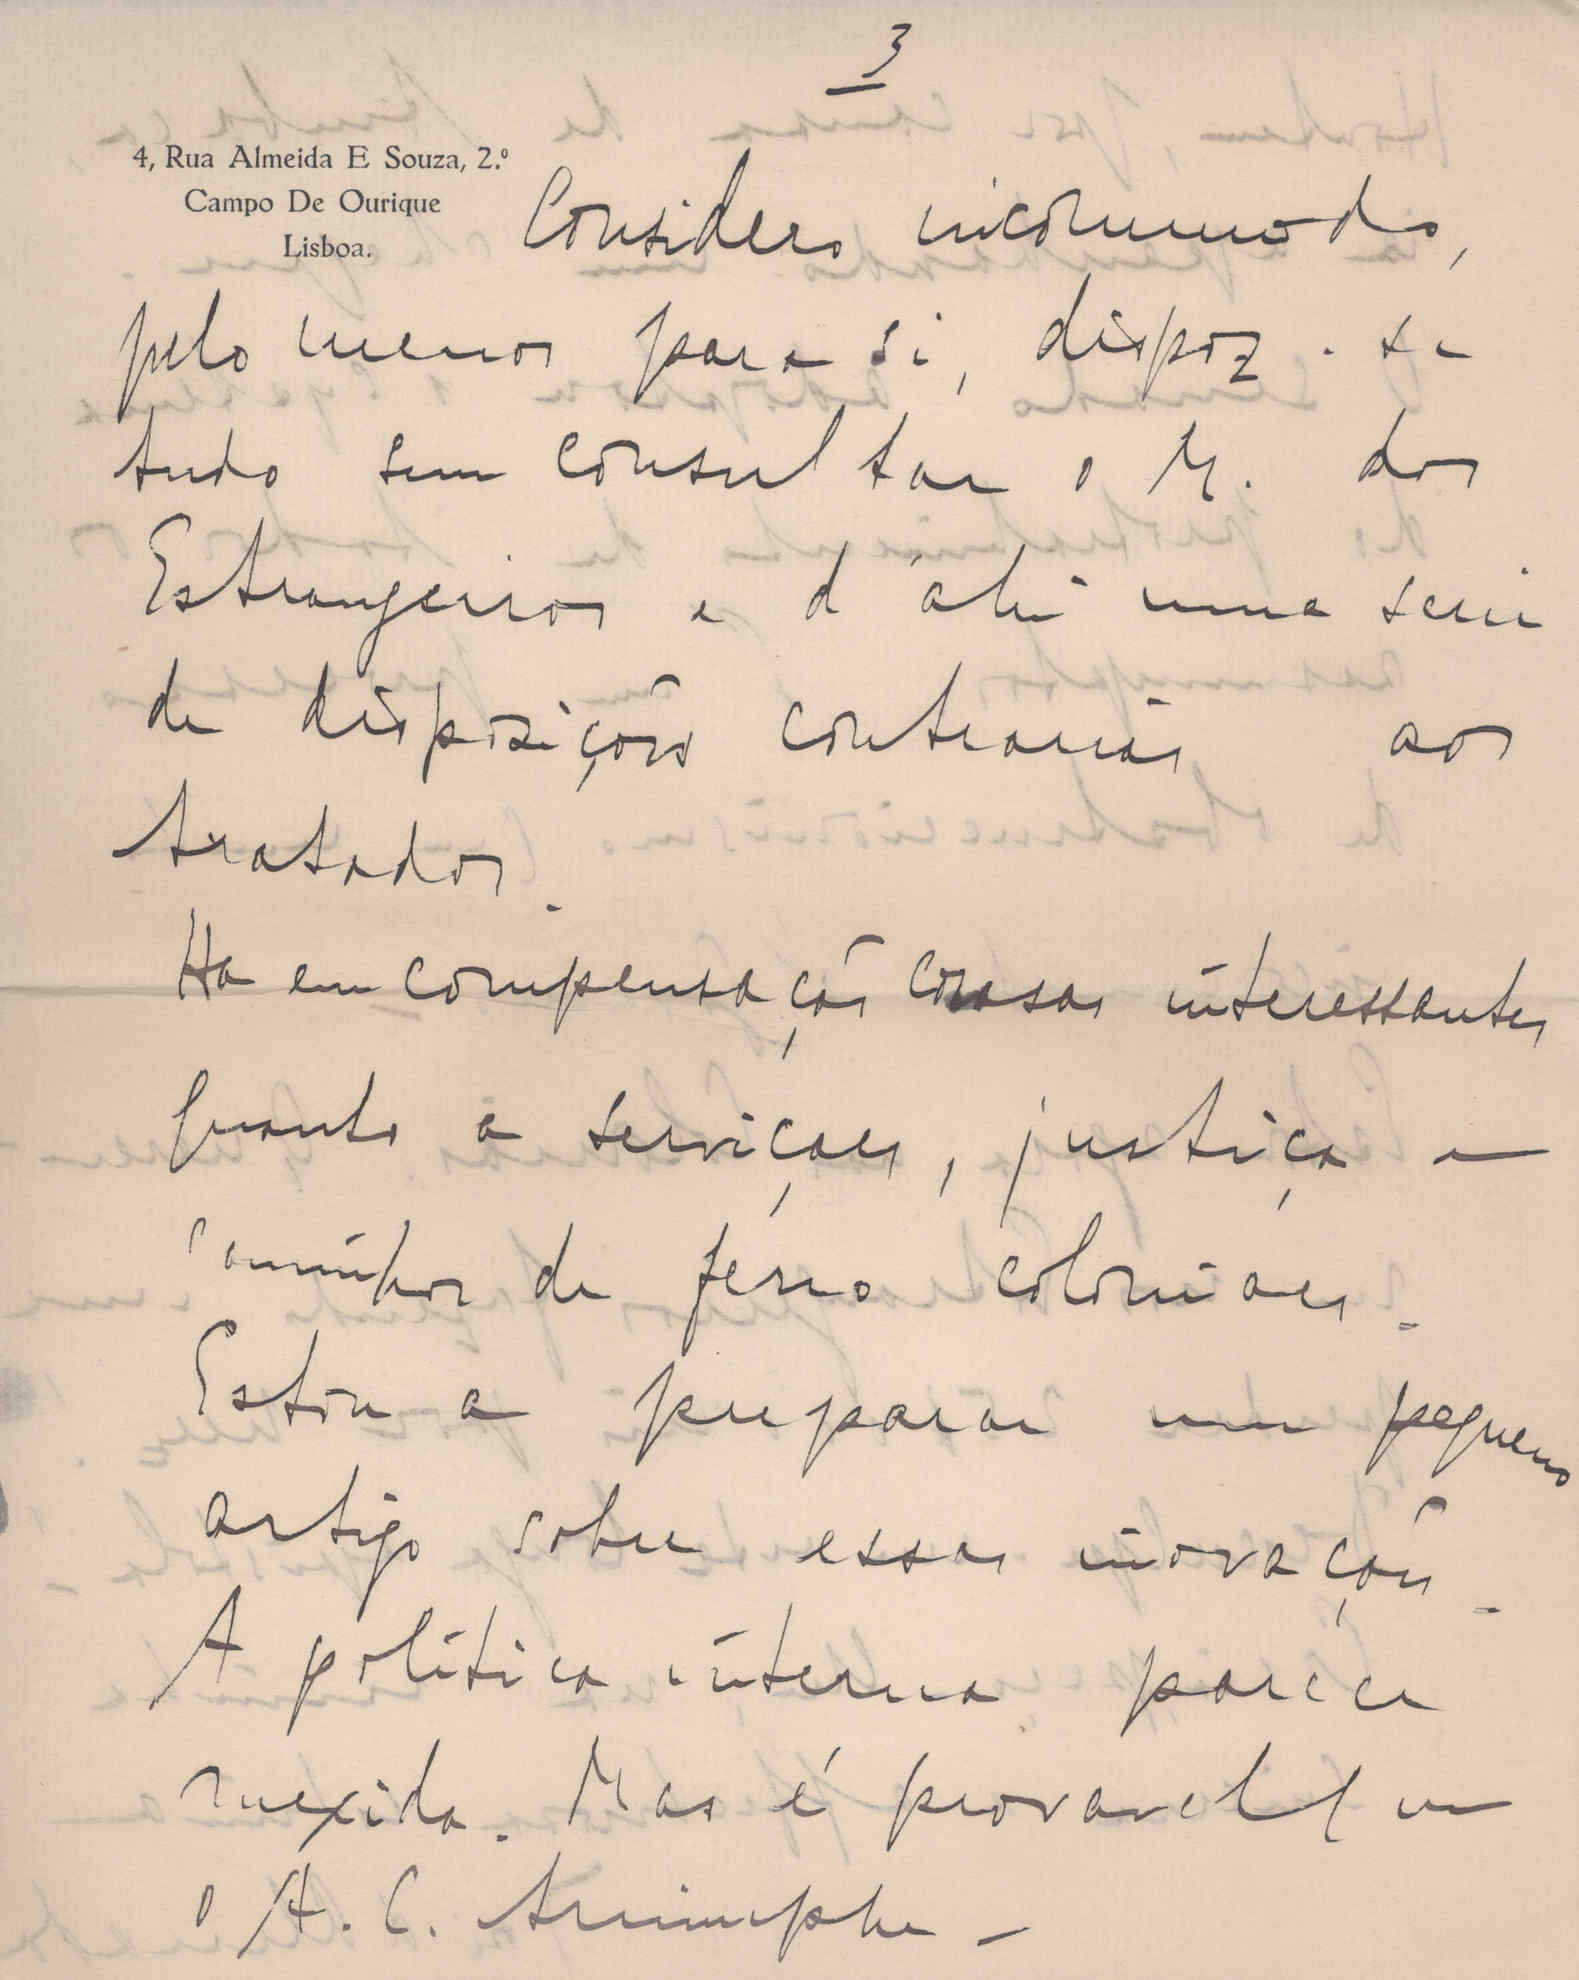 3
4, Rua Almeida E Souza, 2.º
Campo De Ourique
Lisboa.
Considero incommodo,
pelo menos para si, dispoz-se
tudo sem consultar o M. dos
Estrangeiros e d'ahi uma serie
de disposições contrarias aos
tratados.
Ha em compensação cousas interessantes
quanto a serviçaes, justiça e
caminhos de ferro coloniaes.
Estou a preparar um pequeno
artigo sobre essas inovações.
A politica interna parece
mexida. Mas é provavel que
o A. C. triumphe -